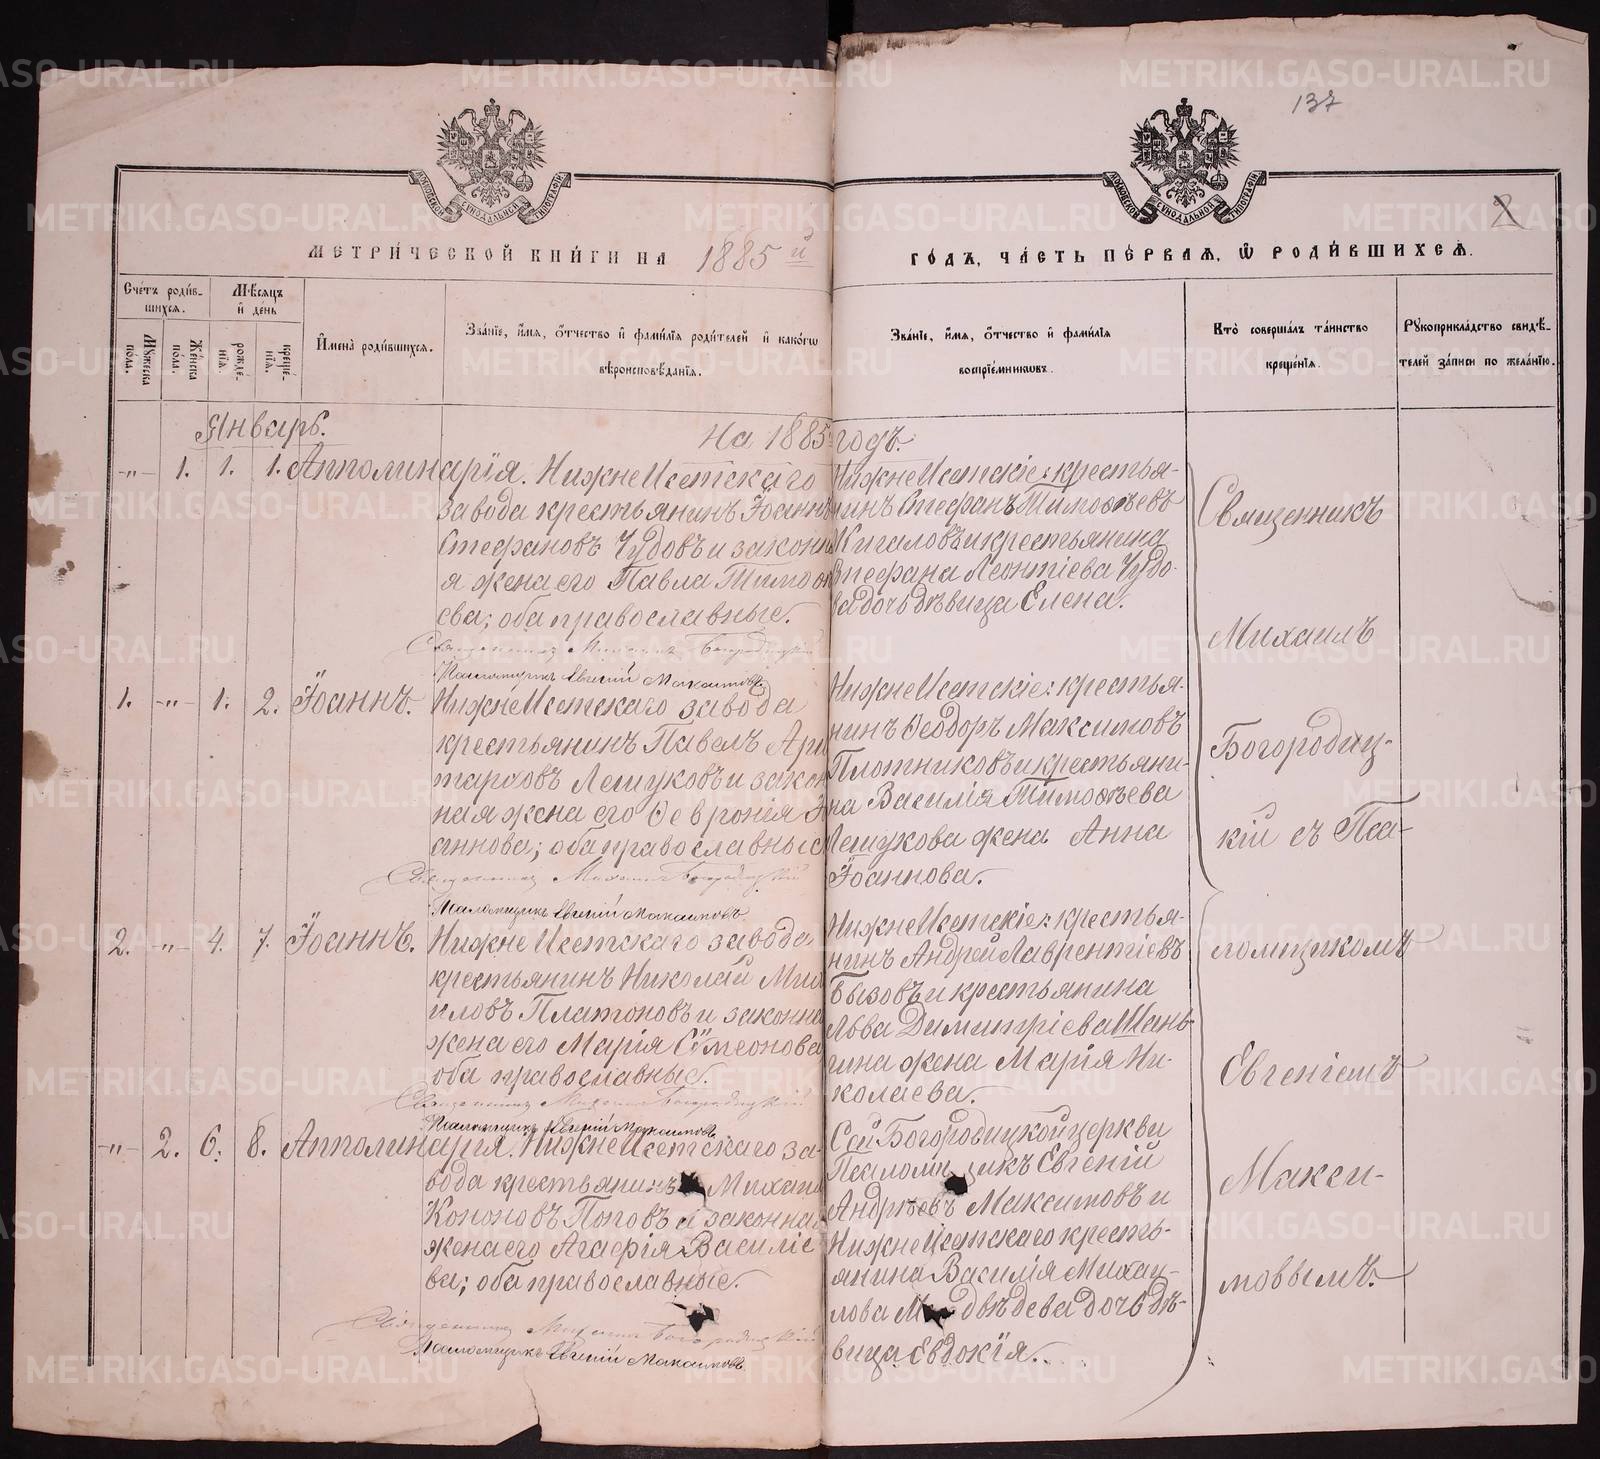 METRIKI.GASO-URAL.RU
137
2
МОСКОВСКОЙ СѴНОДАЛЬНОЙ ТИПОГРАФІИ
МОСКОВСКОЙ СѴНОДАЛЬНОЙ ТИПОГРАФІИ
МЕТРИ́ЧЕСКОЙ КНИ́ГИ НА 1885 й ГО́ДЪ, ЧА́СТЬ ПЕ́РВАЯ, Ѡ РОДИ́ВШИХСЯ.
Сче́тъ роди́в-
шихся.
Мꙋжеска по́ла.
Же́нска по́ла.
Мѣсяцъ и де́нь
рожде́-
нїя.
креще́-
нїя.
И҆мена̀ роди́вшихся.
Зва́нїе, и҆́мя, ѻ҆́тчество и҆ фами́лїя роди́телей и҆ како́гѡ
вѣроисповѣ́данїя.
Зва́нїе, и҆́мя, ѻ҆́тчество и҆ фами́лїя
воспрїе́мникѡвъ.
Кто̀ соверша́лъ та́инство
креще́нїя.
Рꙋкоприкла́дство свидѣ́-
телей за́писи по жела́нїю.
Январь. На 1885 годъ.
-„- 1. 1. 1. Апполинарія. НижнеИсетскаго
завода крестьянинъ Іоаннъ
Стефановъ Чудовъ и законн
я жена его Павла Тимоѳ
ева; оба православные.
Священникъ Михаилъ Богородицкій
Псаломщикъ Евгеній Максимовъ
НижнеИсетскіе: крестья-
нинъ Стефанъ Тимоѳеевъ
Кигаловъ и крестьянина
Стефана Леонтіева Чудо-
ва дочь дѣвица Елена.
1. -„- 1. 2. Іоаннъ. НижнеИсетскаго завода
крестьянинъ Павелъ Ари
тарховъ Лешуковъ и закон
ная жена его Ѳевронія І
аннова; оба православные
Священникъ Михаилъ Богородицкій
Псаломщикъ Евгеній Максимовъ
НижнеИсетскіе: крестья-
нинъ Ѳеодоръ Максимовъ
Плотниковъ и крестьяни-
на Василія Тимоѳеева
Лешукова жена Анна
Іоаннова.
2. -„- 4. 7. Іоаннъ. НижнеИсетскаго завода
крестьянинъ Николай Миха
иловъ Платоновъ и законна
жена его Марія Сѵмеонова
оба православные.
Священникъ Михаилъ Богородицкій
Псаломщикъ Евгеній Максимовъ
НижнеИсетскіе: крестья-
нинъ Андрей Лаврентіевъ
Бызовъ и крестьянина
Льва Димитріева Шань-
гина жена Марія Ни-
колаева.
-„- 2. 6. 8. Апполинарія. НижнеИсетскаго за-
вода крестьянинъ Михаи
Кононовъ Поповъ и законна
жена его Агафія Василіе
ва; оба православные.
Священникъ Михаилъ Богородицкій
Псаломщикъ Евгеній Максимовъ
Сей Богородицкой церкви
Псаломщикъ Евгеній
Андреевъ Максимовъ и
НижнеИсетскаго кресть-
янина Василія Михаи-
лова Медвѣдева дочь дѣ-
вица Евдокія.
Священникъ
Михаилъ
Богородиц-
кій съ Пса-
ломщикомъ
Евгеніемъ
Макси-
мовымъ.